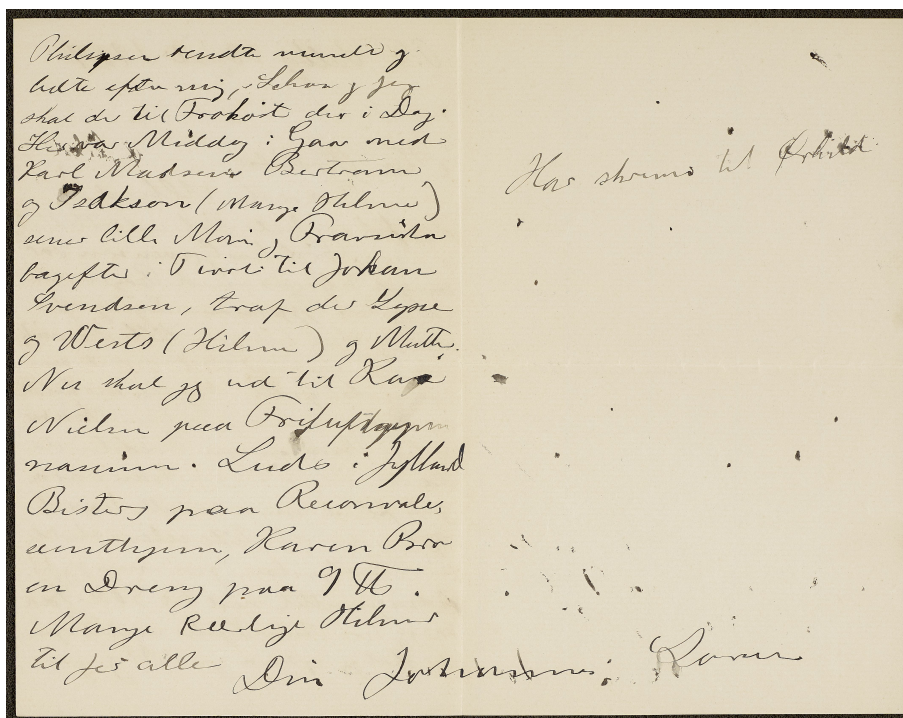 Philipsen vendte rundt og
ledte efter mig, Schou og jeg
skal de til Frokost der i Dag.
Her var Middag i Gaar med
Karl Madsens Bertram
og Isakson (Mange Hilsner)
senere lille Moin og
bagefter i Tivoli til Johan
Svendsen, traf der
og Wests (Hilsen) og
Nu skal jeg ud til Kai
Nielsen paa Friluftsgym
nasium. Luds i Jylland
Bisters paa Reconvales,
centhjem, Karen Bro
en Dreng paa 9 ℔.
Mange Kærlige Hilsner
til Jer alle
Din Johannes, Larsen
Har skrevet til